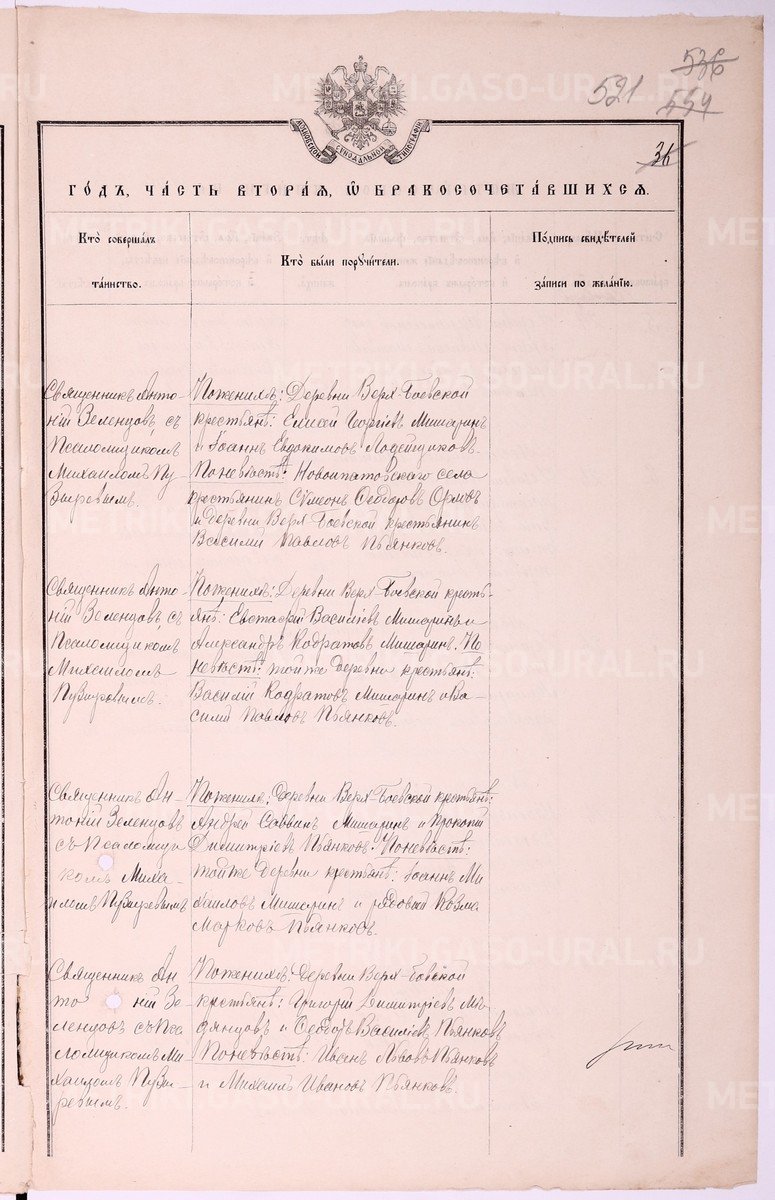 536
521 554
МОСКОВСКОЙ СѴНОДАЛЬНОЙ ТИПОГРАФІИ
36
ГОДЪ, ЧАСТЬ ВТОРАЯ, Ѡ БРАКОСОЧЕТАВШИХСЯ.
Кто совершалъ таинство.
Кто были поручители.
Подпись свидѣтелей записи по желанію.
Священникъ Анто-
ній Зеленцовъ съ
Псаломщикомъ
Михаиломъ Пу-
зыревымъ.
По женихѣ: Деревни Верх-Боевской
крестьянѣ: Елисей Георгіевъ Мишаринъ
и Іоаннъ Евдокимовъ Лодейщиковъ.
По невѣстѣ: Новоипатовскаго села
крестьянинъ Сѵмеонъ Ѳеодоровъ Орловъ
и деревни Верх Боевской крестьянинъ
Василій Павловъ Пьянковъ.
Священникъ Анто-
ній Зеленцовъ, съ
Псаломщикомъ
Михаиломъ
Пузыревымъ.
По женихѣ: Деревни Верх Боевской кресть-
янѣ: Евстафій Василіевъ Мишаринъ и
Александръ Кодратовъ Мишаринъ. По
невѣстѣ: той же деревни крестьянѣ:
Василій Кодратовъ Мишаринъ и Ва-
силій Павловъ Пьянковъ.
Священникъ Ан-
тоній Зеленцовъ
съ Псаломщи-
комъ Миха-
иломъ Пузыревымъ
По женихѣ: Деревни Верх-Боевской крестьянѣ:
Андрей Саввинъ Мишаринъ и Прокопій
Димитріевъ Пьянковъ. По невѣстѣ:
той же деревни крестьянѣ: Іоаннъ Ми-
хаиловъ Мишаринъ и рядовой Козма
Марковъ Пьянковъ.
Священникъ Ан-
тоній Зе-
ленцовъ съ Пса-
ломщикомъ Ми-
хаиломъ Пузы-
ревымъ.
По женихѣ: Деревни Верх-Боевской
крестьянѣ: Григорій Димитріевъ
и Ѳеодоръ Василіевъ Пьянковъ
По невѣстѣ: Иванъ Львовъ Пьянковъ
и Михаилъ Ивановъ Пьянковъ.
METRIKI.GASO-URAL.RU